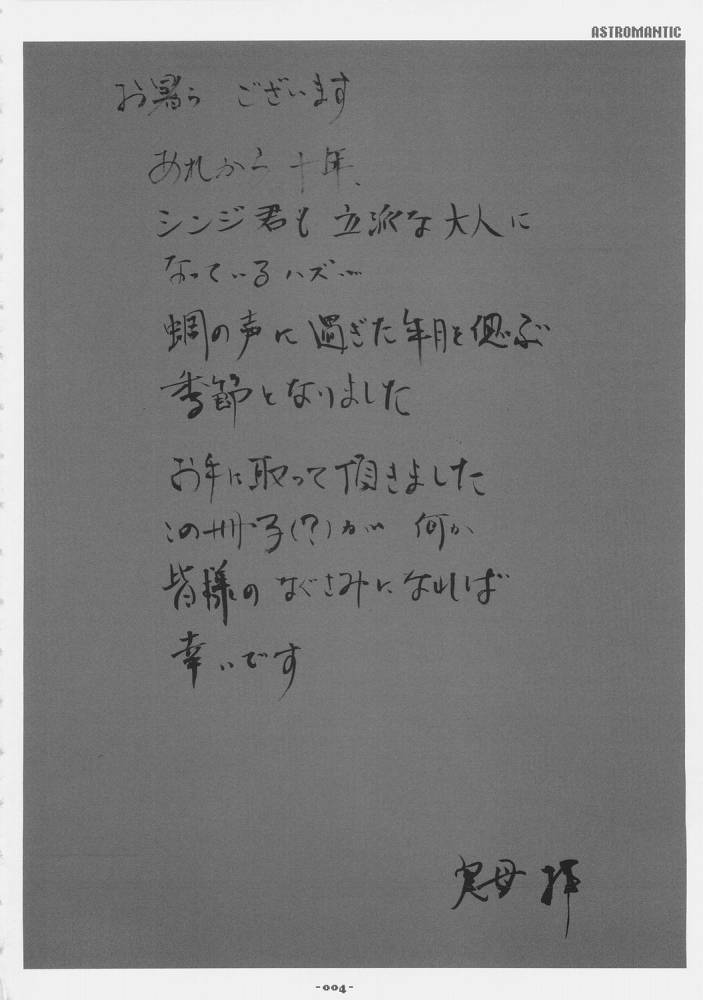 ASTROMANTIC
お暑う ございます
あれから 十年、
シンジ君も 立派な大人に
なっているハズ…
蜩の声に 過ぎた年月を偲ぶ
季節となりました
お手に取って頂きました
この冊子(?)が 何か
皆様の なぐさみに なれば
幸いです
実母 拝
-004-